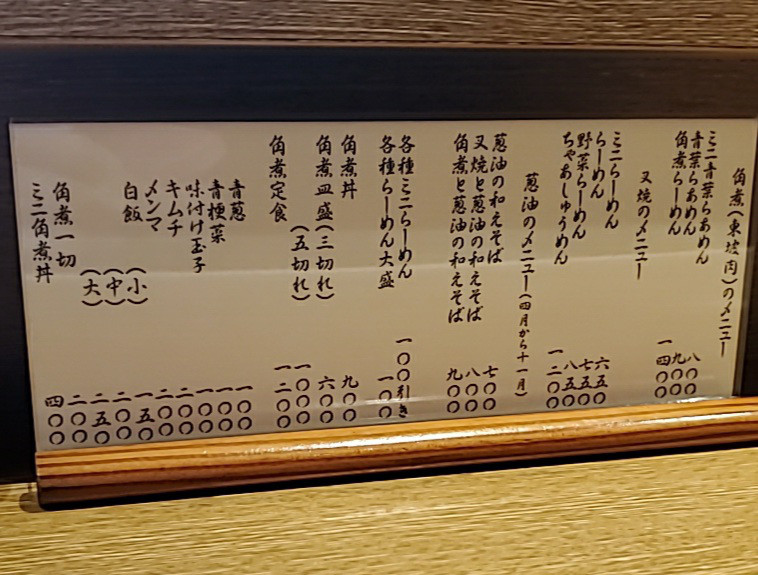 角煮(東坡肉)のメニュー
ミニ青葉らあめん 八〇〇
青葉らあめん 九〇〇
角煮らーめん 一四〇〇
叉焼のメニュー
ミニらーめん 六五〇
らーめん 七五〇
野菜らーめん 八五〇
ちゃあしゅうめん 一二〇〇
葱油のメニュー(四月から十一月)
葱油の和えそば 七〇〇
叉焼と葱油の和えそば 八〇〇
角煮と葱油の和えそば 九〇〇
各種ミニらーめん 一〇〇引き
各種らーめん大盛 一〇〇
角煮丼 九〇〇
角煮皿盛(三切れ) 六〇〇
(五切れ) 一〇〇〇
角煮定食 一二〇〇
青葱 一〇〇
青梗菜 一〇〇
味付け玉子 一〇〇
キムチ 二〇〇
メンマ 二〇〇
白飯(小) 一五〇
(中) 二〇〇
(大) 二五〇
角煮一切 二〇〇
ミニ角煮丼 四〇〇